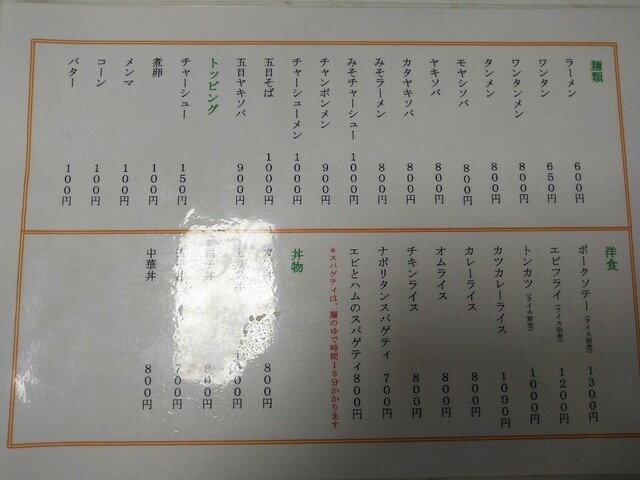 麺類
ラーメン 600円
ワンタン 650円
ワンタンメン 800円
タンメン 800円
モヤシソバ 800円
ヤキソバ 800円
カタヤキソバ 800円
みそラーメン 800円
みそチャーシュー 1000円
チャンポンメン 900円
チャーシューメン 1000円
五目そば 1000円
五目ヤキソバ 900円
トッピング
チャーシュー 150円
煮卵 100円
メンマ 100円
コーン 100円
バター 100円
洋食
ポークソテー(ライス別売) 1300円
エビフライ(ライス別売) 1200円
トンカツ(ライス別売) 1000円
カツカレーライス 1000円
カレーライス 800円
オムライス 800円
チキンライス 800円
ナポリタンスパゲティ 700円
エビとハムのスパゲティ 800円
*スパゲティは、麺のゆで時間15分かかります
丼物
800円
丼
丼 800円
丼 700円
中華丼 800円